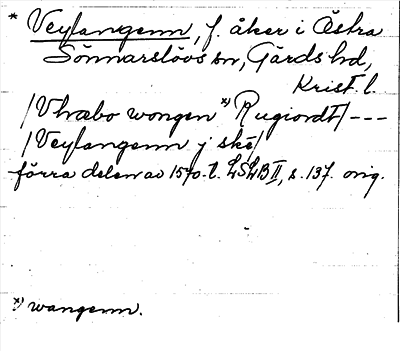 * Veylangenn, f. åker i Östra
Sönnarslövs sn, Gärds hd,
Krist. l.
/Vhræbo wongen *) Rugiordt/ ---
/Veylangenn j ske/
förra delen av 1570-t. LSLB II, s. 137. orig.
*) wangenn.